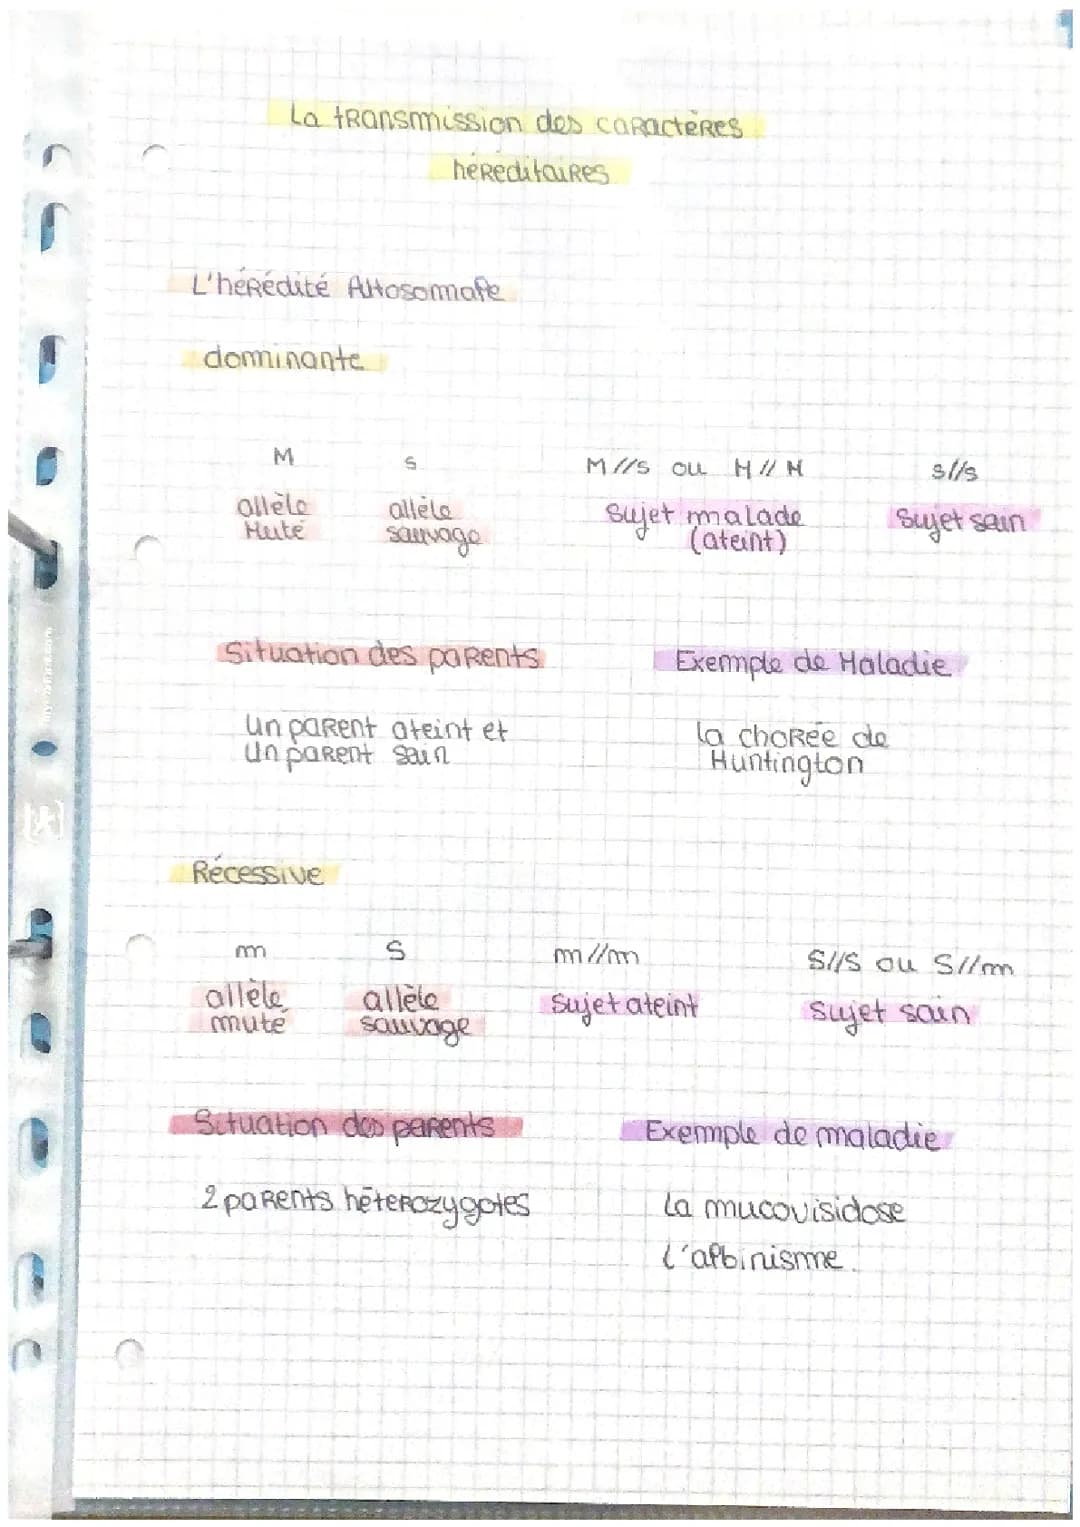 La transmission des caractères
héréditaires
L'hérédité Autosomale
dominante
M s M//s ou M//M s//s
allèle allèle sujet malade sujet sain
Muté sauvage (ateint)
Situation des parents Exemple de Maladie
un parent ateint et la chorée de
un parent sain Huntington
Récessive
m S m//m S//S ou S//m
allèle allèle sujet ateint sujet sain
muté sauvage
Situation des parents Exemple de maladie
2 parents hétérozygotes La mucovisidose
L'albinisme.